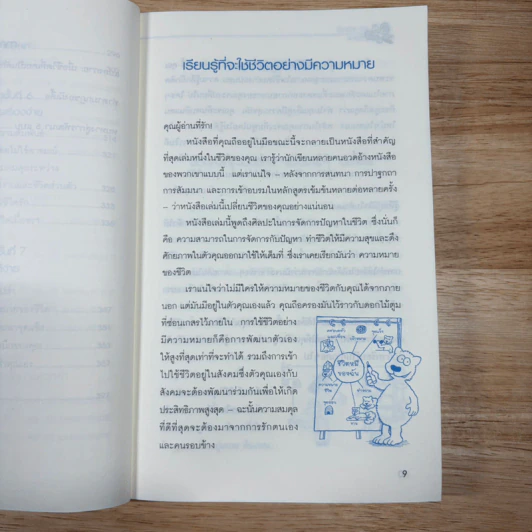 เรียนรู้ที่จะใช้ชีวิตอย่างมีความหมาย
คุณผู้อ่านที่รัก
หนังสือที่คุณถืออยู่ในมือขณะนี้จะกลายเป็นหนังสือที่สำคัญ
ที่สุดเล่มหนึ่งในชีวิตของคุณ เรารู้ว่านักเขียนหลายคนอวดอ้างหนังสือ
ของพวกเขาแบบนี้ แต่เราแน่ใจ – หลังจากการสนทนา การปาฐกถา
การสัมมนา และการเข้าอบรมในหลักสูตรเข้มข้นหลายต่อหลายครั้ง
– ว่าหนังสือเล่มนี้เปลี่ยนชีวิตของคุณอย่างแน่นอน
หนังสือเล่มนี้พูดถึงศิลปะในการจัดการปัญหาในชีวิต ซึ่งนั่นก็
คือ ความสามารถในการจัดการกับปัญหา ทำชีวิตให้มีความสุขและดึง
ศักยภาพในตัวคุณออกมาใช้ให้เต็มที่ ซึ่งเราเคยเรียกมันว่า ความหมาย
ของชีวิต
เราแน่ใจว่าไม่มีใครให้ความหมายของชีวิตกับคุณได้จากภาย
นอก แต่มันมีอยู่ในตัวคุณเองแล้ว คุณถือครองมันไว้ราวกับดอกไม้ตูม
ที่ซ่อนเกสรไว้ภายใน การใช้ชีวิตอย่าง
มีความหมายก็คือการพัฒนาตัวเอง
ให้สูงที่สุดเท่าที่จะทำได้ รวมถึงการเข้า
ไปใช้ชีวิตอยู่ในสังคมซึ่งตัวคุณเองกับ
สังคมจะต้องพัฒนาร่วมกันเพื่อให้เกิด
ประสิทธิภาพสูงสุด – ฉะนั้นความสมดุล
ที่ดีที่สุดจะต้องมาจากการรักตนเอง
และคนรอบข้าง
ชีวิตหมี
ของฉัน
9